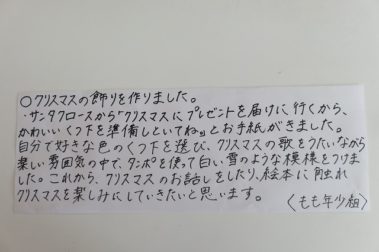 ○クリスマスの飾りを作りました。
・サンタクロースから「クリスマスにプレゼントを届けに行くから、
かわいいくつ下を準備しといてね。」とお手紙がきました。
自分で好きな色のくつ下を選び、クリスマスの歌をうたいながら
楽しい雰囲気の中で、タンポを使って白い雪のような模様をつけま
した。これから、クリスマスのお話しをしたり、絵本に触れ
クリスマスを楽しみにしていきたいと思います。
〈もも年少組〉